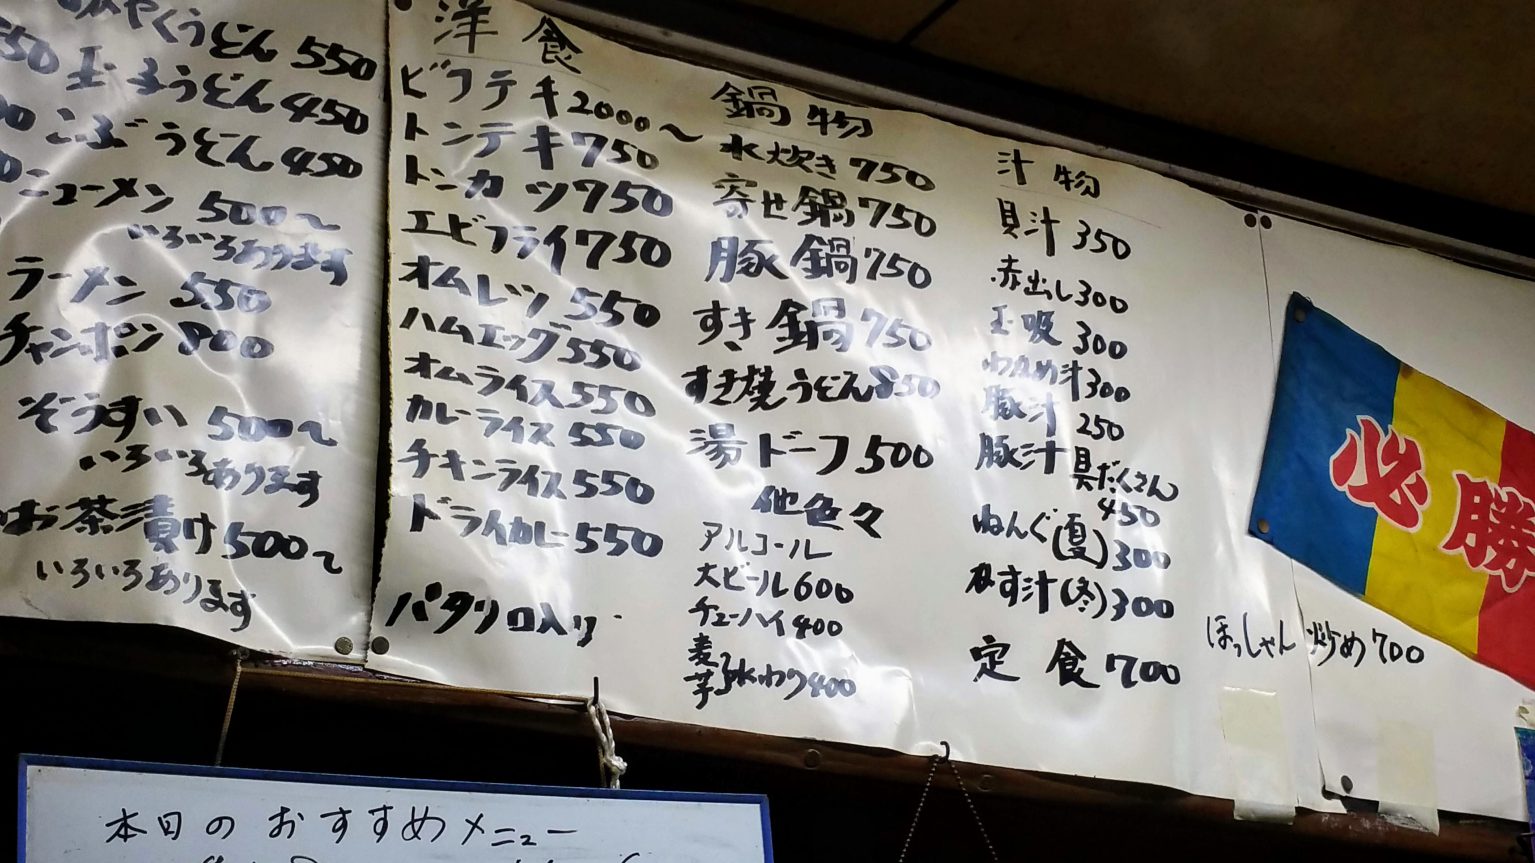 やくうどん 550
550 玉子うどん 450
こぶうどん 450
ニューメン 500〜
いろいろあります
ラーメン 550
チャンポン 800
ぞうすい 500〜
いろいろあります
お茶漬け 500〜
いろいろあります
洋食
ビフテキ 2000〜
トンテキ 750
トンカツ 750
エビフライ 750
オムレツ 550
ハムエッグ 550
オムライス 550
カレーライス 550
チキンライス 550
ドライカレー 550
鍋物
水炊き 750
寄せ鍋 750
豚鍋 750
すき鍋 750
すき焼うどん 850
湯ドーフ 500
他色々
アルコール
大ビール 600
チューハイ 400
麦
芋 水わり 400
汁物
貝汁 350
赤出し 300
玉吸 300
わかめ汁 300
豚汁 250
豚汁 具だくさん
450
(夏) 300
汁(冬) 300
定食 700
ほっしゃん 炒め 700
必勝
本日のおすすめメニュー